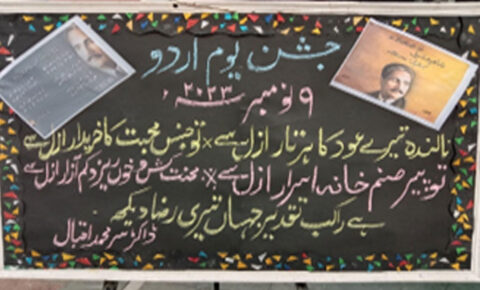 جشن یوم اردو
۹ نومبر ۲۰۲۳ء
نالندہ تیرے عود کا ہر تار ازل سے × تو جنس محبت کا خریدار ازل سے
تو پیر صنم خانہ اسرار ازل سے × محنت کش و خوں ریز و کم آزار ازل سے
ہے راکب تقدیر جہاں تیری رضا دیکھ
ڈاکٹر سر محمد اقبال